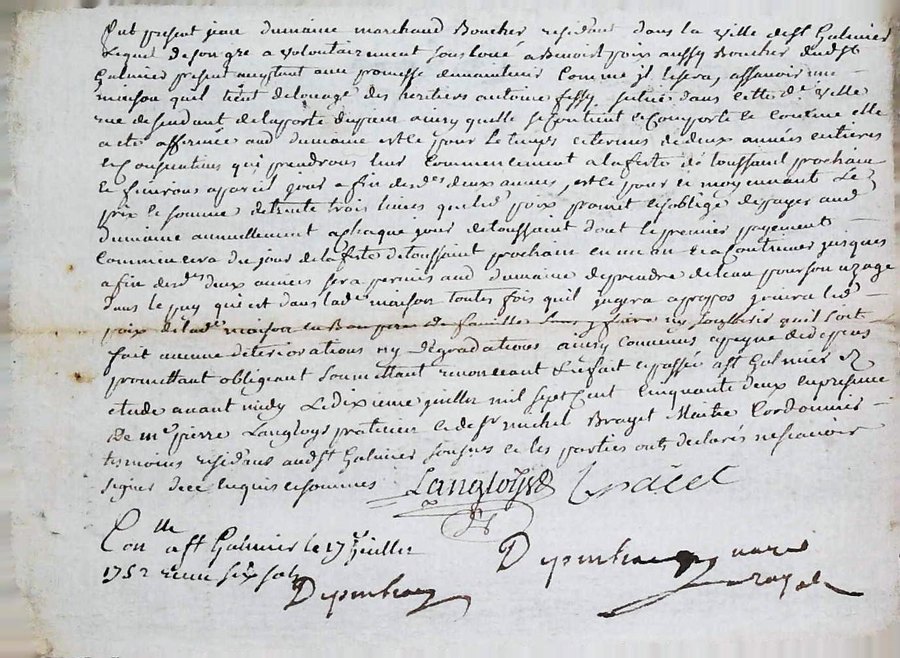 fut present jean dumaine marchand Boucher residant dans la ville de st Galmier
lequel de son gre a volontairement sous loué a Benoist poix aussy Boucher dudt st
Galmier present acceptant avec promesse de maintenir comme jl fera, assavoir une
maison quil tient de louage des heritiers antoine fessy, située dans cette de ville
rue descendant de la porte ainsy quelle se contient se comporte et comme elle
a eté affermée aud dumaine est ce pour le temps et terme de deux années entieres
et consecutives qui prendrons leur commencement a la feste de toussaint prochaine
et finirons a pareil jour a fin desdes deux années, est ce pour et moyennant le
prix et somme de trente trois livres que led poix promet et soblige de payer aud
dumaine annuellement a chaque jour de toussaint dont le premier payement
commencera du jour de la feste de toussaint prochain en un an et a continuer jusques
a fin desdes deux années sera permis aud dumaine de prendre de leau pour son uzage
dans le puy qui est dans lade maison toutes fois quil jugera apropos jouira led
poix de lade maison en bon pere de famille sans y faire ny souffrir quil soit
fait aucune deteriorations ny degradations ainsy convenus a peyne de depens
promettant obligeant soumettant renonceant &c fait et passée a st Galmier
etude avant midy le dixieme juillet mil sept cent cinquante deux en presence
de me pierre Langloys praticien et de sr michel Brayet Maitre Cordonnier
temoins residans audt st Galmier soussignés et les parties ont declarés ne scavoir
signer de ce enquis et sommés Langloys
Conlle a st Galmier le 17e juillet
1752 reçu six sols
royal